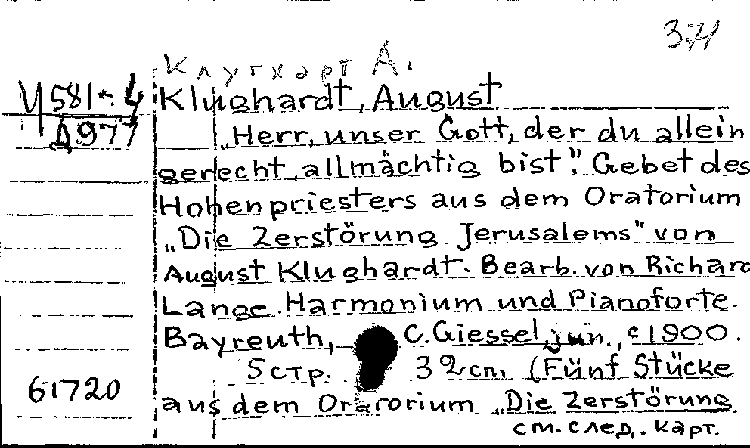 371
Клугхарт А.
Ч 581-4
Д977
Klughardt, August
„Herr, unser Gott, der du allein
gerecht, allmächtig bist". Gebet des
Hohenpriesters aus dem Oratorium
„Die Zerstörung Jerusalems" von
August Klughardt. Bearb. von Richard
Lange. Harmonium und Pianoforte.
Bayreuth, C. Giessel jun., c 1900.
5 стр. (Fünf Stücke
61720
aus dem Orarorium „Die Zerstörung
см. след. карт.